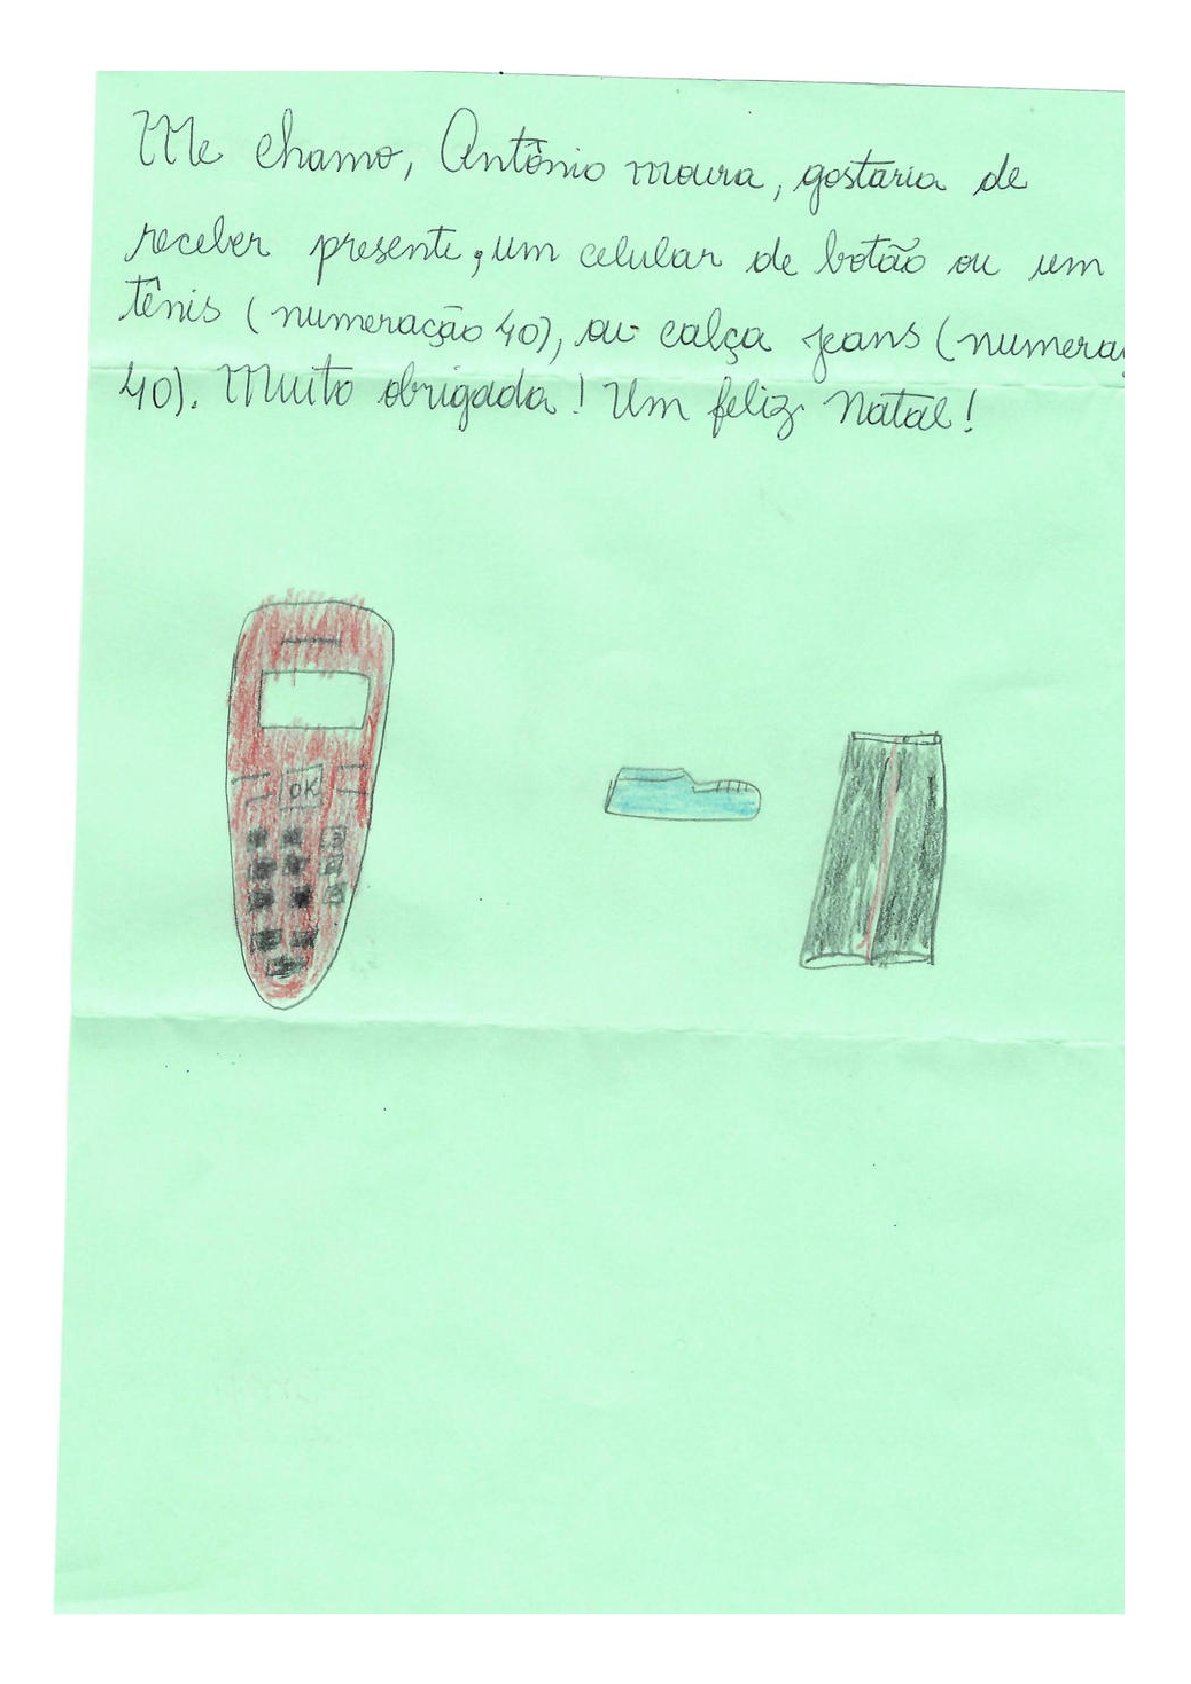 Me chamo, Antônio moura, gostaria de
receber presente, um celular de botão ou um
tênis (numeração 40), ou calça jeans (numera
40). Muito obrigada! Um feliz Natal!
OK